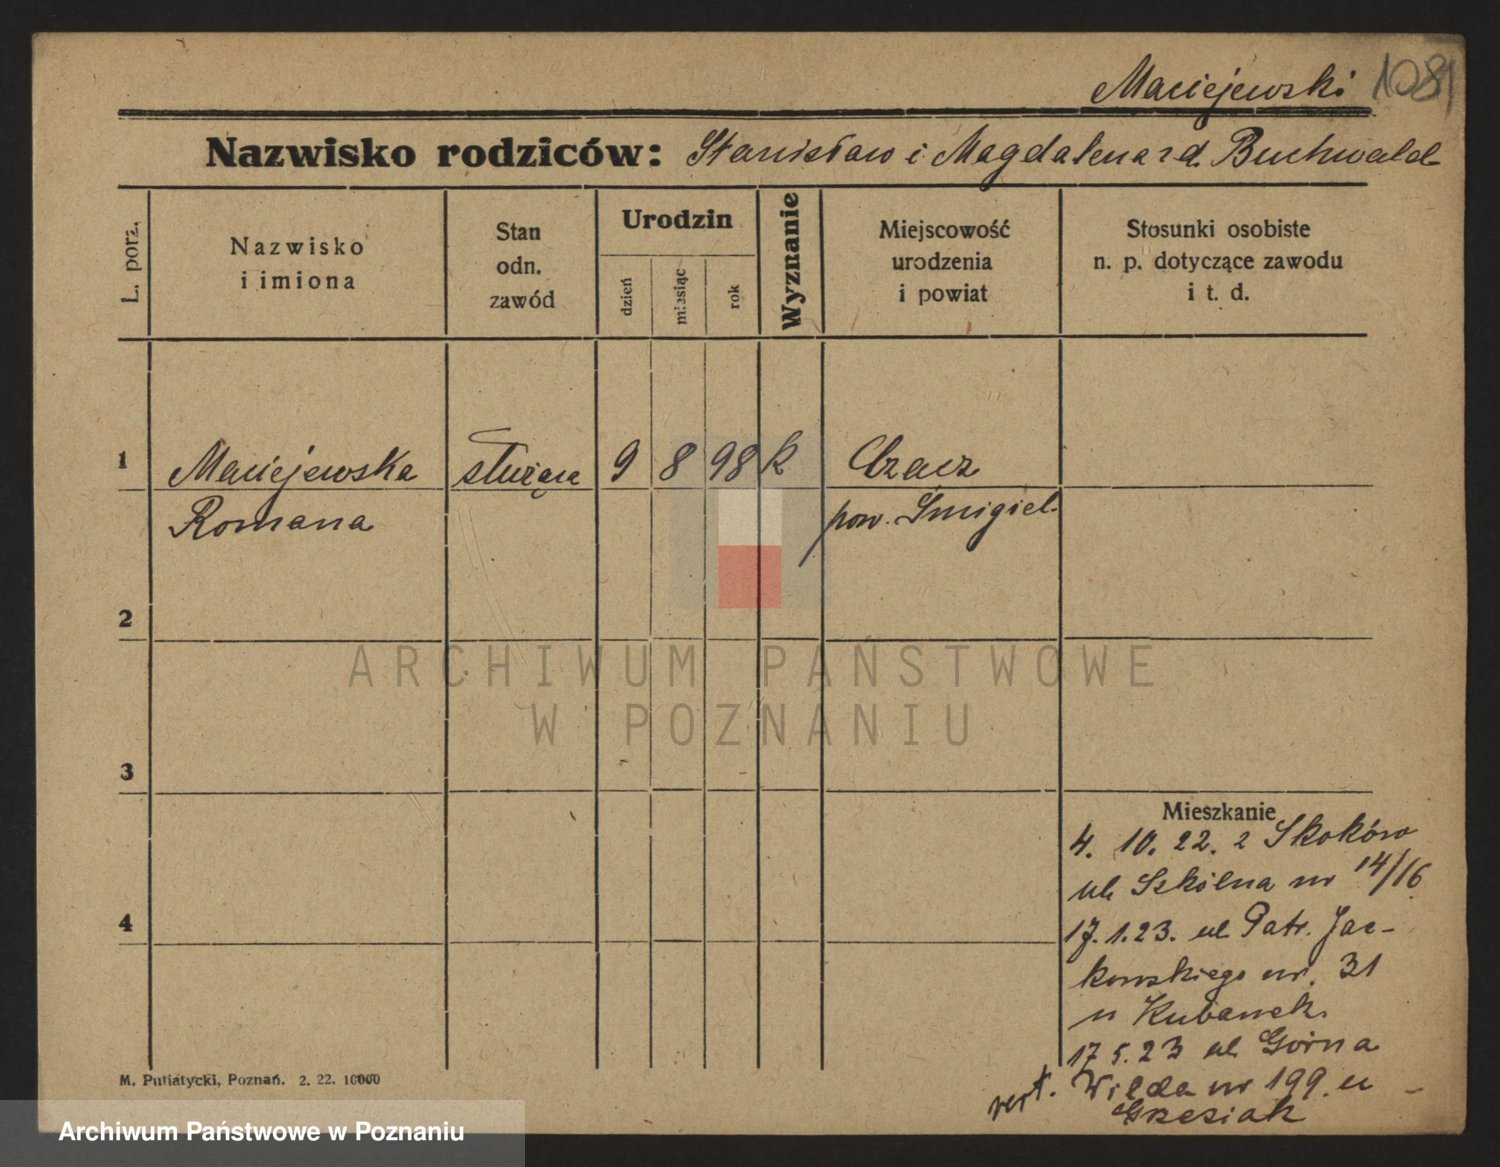 Maciejewski 1081
Nazwisko rodziców: Stanisław i Magdalena z d. Buchwald
L. porz.
Nazwisko
i imiona
Stan
odn.
zawód
Urodzin
dzień
miesiąc
rok
Wyznanie
Miejscowość
urodzenia
i powiat
Stosunki osobiste
n. p. dotyczące zawodu
i t. d.
1 Maciejewska służąca 9 8 98 k Czacz
Romana pow. Śmigiel
2
ARCHIWUM PAŃSTWOWE
W POZNANIU
3
Mieszkanie
4. 10. 22. z Skoków
ul. Szkólna nr 14/16
4
17. 1. 23. ul Patr. Jac-
kowskiego nr. 31
u Kubanek.
17 5. 23 ul Górna
Wilda nr 199. u
vert. Grzesiak
M. Putiatycki, Poznań. 2. 22. 10000
Archiwum Państwowe w Poznaniu